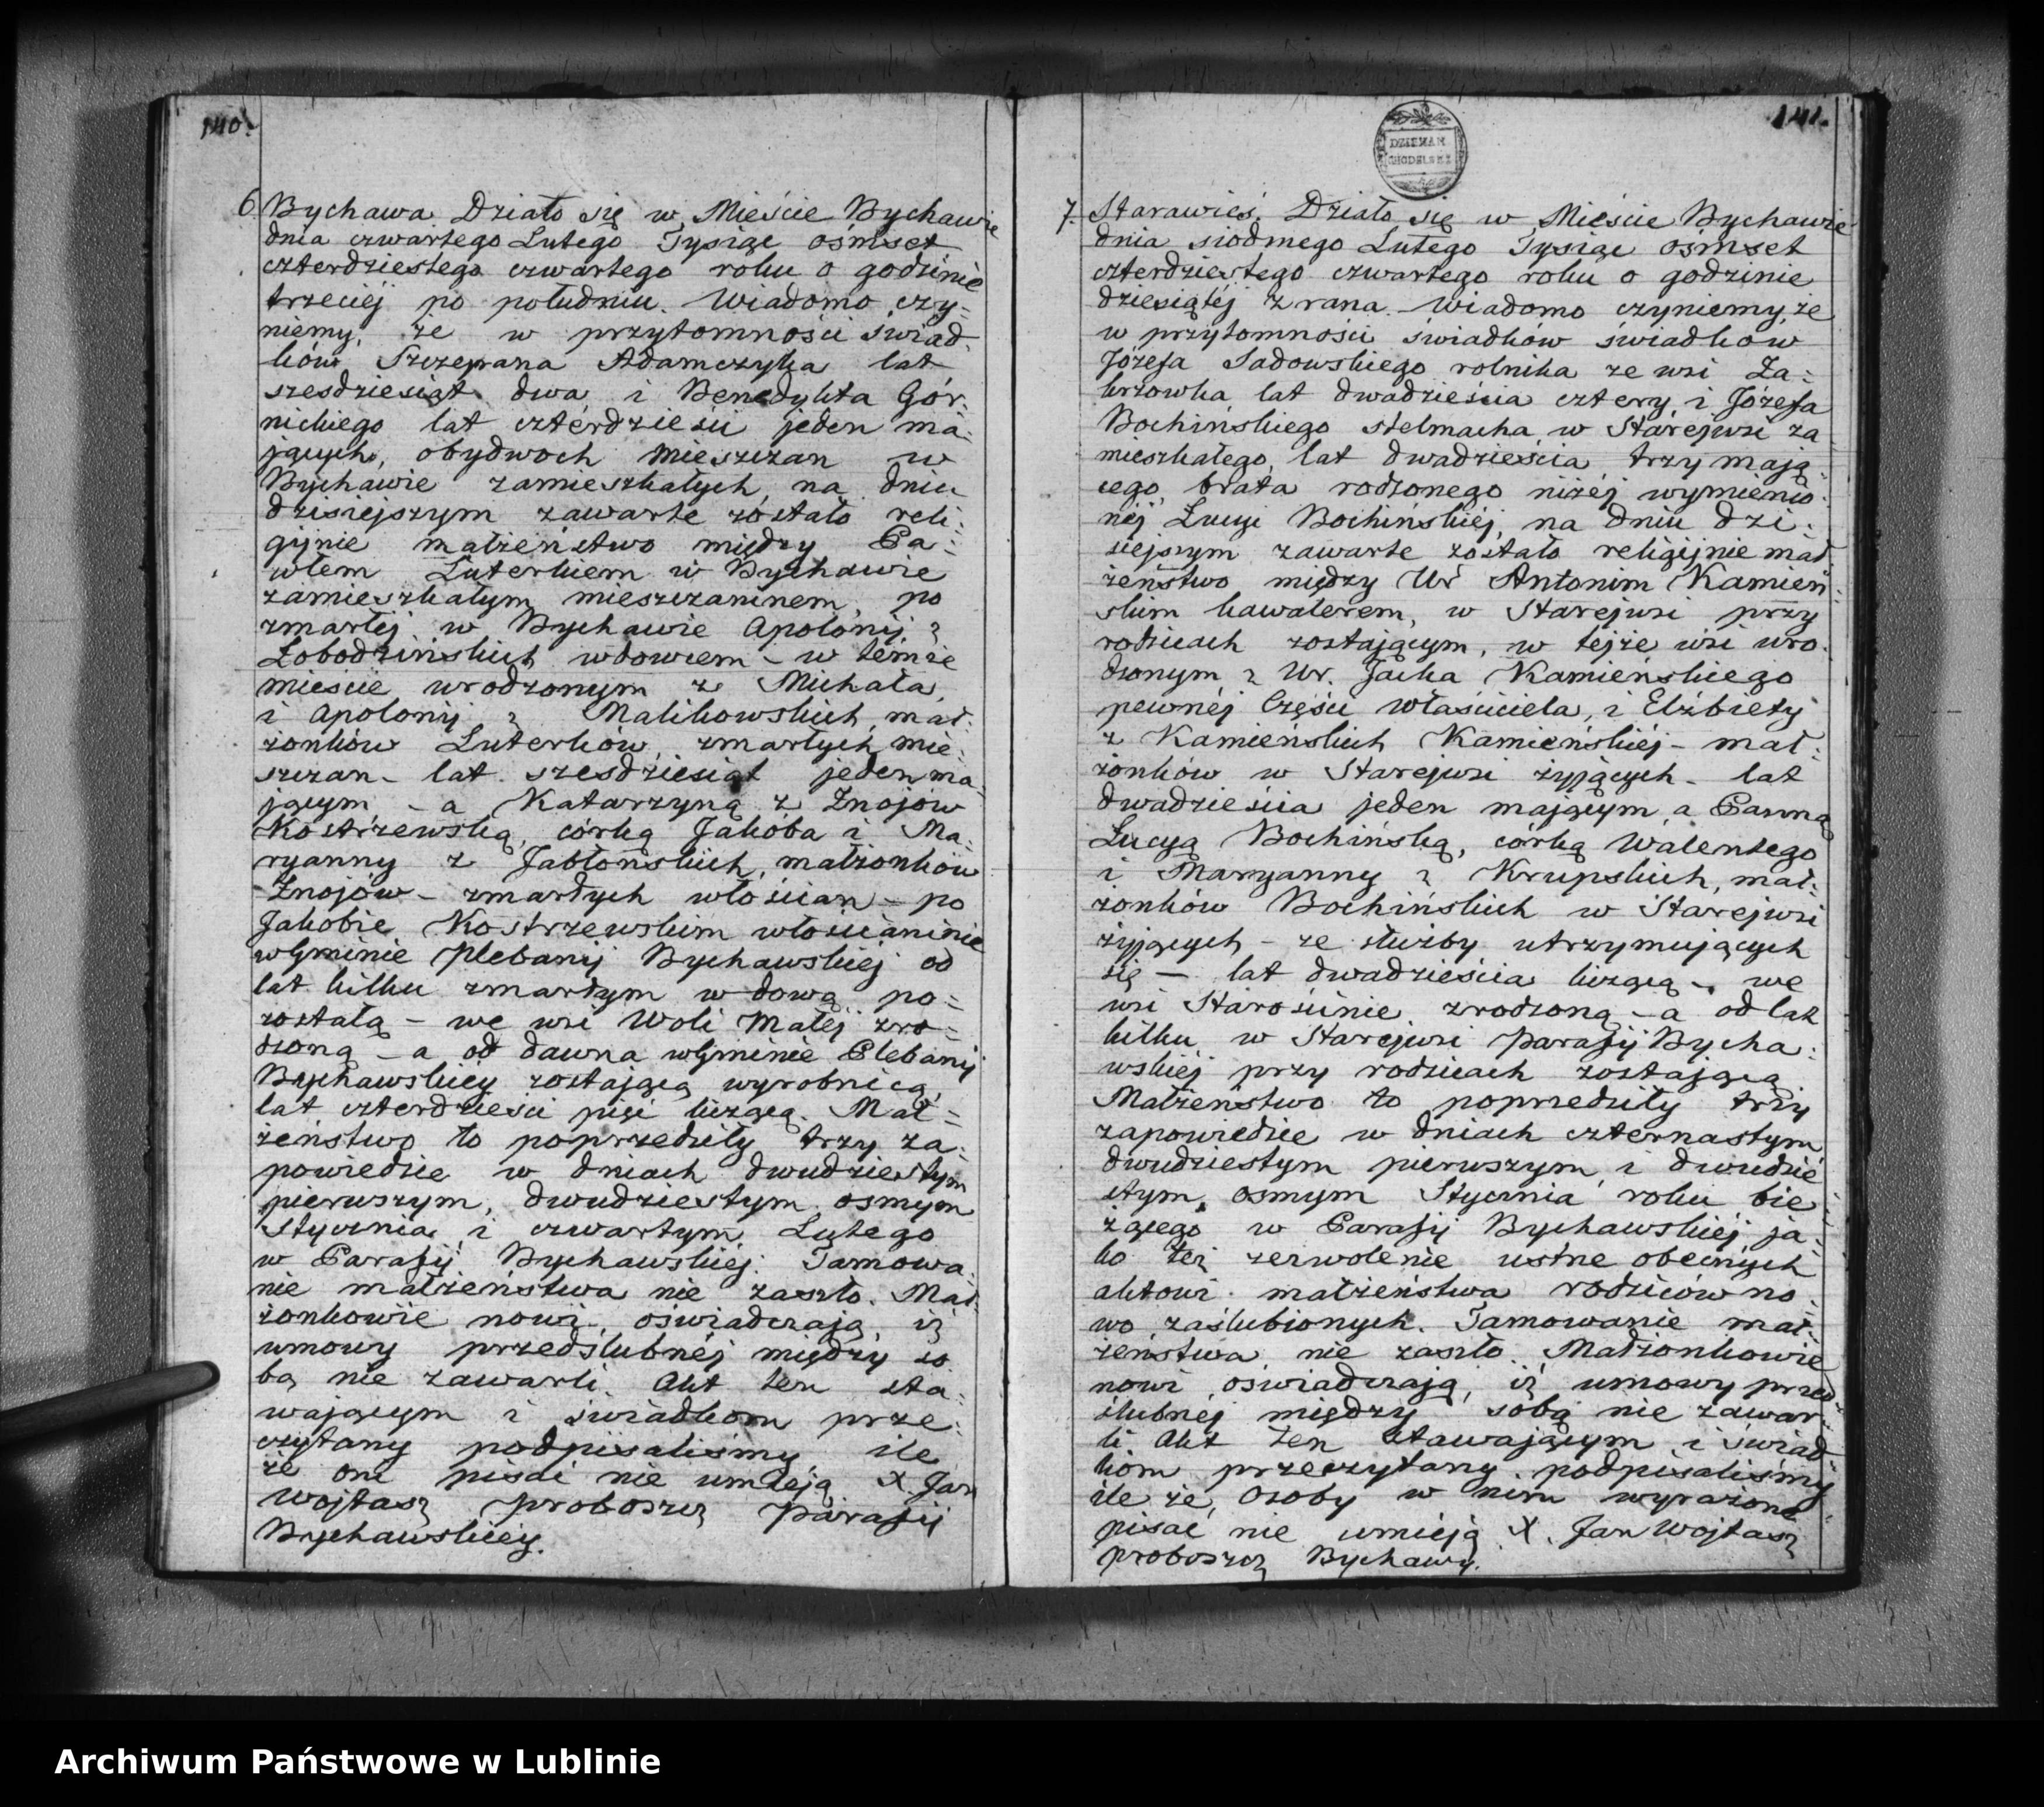 140.
6. Bychawa Działo się w Mieście Bychawie
dnia czwartego Lutego Tysiąc ośmset
czterdziestego czwartego roku o godzinie
trzeciej po południu. Wiadomo czy-
niemy, że w przytomności świad-
ków Szczepana Adamczyka lat
szesdziesiąt dwa i Benedykta Gór-
nickiego lat czterdzieści jeden ma-
jących, obydwoch mieszczan w
Bychawie zamieszkałych, na dniu
dzisiejszym zawarte zostało reli-
gijnie małżeństwo między Pa-
włem Luterkiem w Bychawie
zamieszkałym mieszczaninem, po
zmarłéj w Bychawie Apolonij z
Łobodzińskich wdowcem – w témże
mieście urodzonym z Michała
i Apolonij z Malikowskich, mał-
żonków Luterków, zmarłych mie-
szczan – lat szesdziesiąt jeden ma-
jącym – a Katarzyną z Znojów
Kostrzewską, córką Jakóba i Ma-
ryanny z Jabłońskich, małżonków
Znojów – zmarłych włościan – po
Jakóbie Kostrzewskim włościaninie
w Gminie Plebanij Bychawskiej od
lat kilku zmarłym wdową po-
zostałą – we wsi Woli Małej zro-
dzoną – a od dawna w Gminie Plebanij
Bychawskiéy zostającą wyrobnicą,
lat czterdzieści pięć liczącą. Mał-
żeństwo to poprzedziły trzy za-
powiedzie w dniach dwudziestym
pierwszym, dwudziestym osmym
Stycznia i czwartym Lutego
w Parafij Bychawskiéj. Tamowa-
nie małżeństwa nie zaszło. Mał-
żonkowie nowi, oświadczają, iż
umowy przedślubnéj między so
bą nie zawarli. Akt ten sta-
wającym i świadkom prze-
czytany podpisaliśmy, ile
że oni pisać nie umieją X. Jan
Wojtasz proboszcz Parafij
Bychawskiéy.
141.
DZIENAN
7. Starawieś. Działo się w Mieście Bychawie
dnia siódmego Lutego Tysiąc ośmset
czterdziestego czwartego roku o godzinie
dziesiątéj z rana. Wiadomo czyniemy, że
w przytomności świadków świadków
Józefa Sadowskiego rolnika ze wsi Za-
krzowka lat dwadzieścia cztery, i Józefa
Bochińskiego stelmacha, w Starejwsi za
mieszkałego, lat dwadzieścia trzy mają-
cego, brata rodzonego niżéj wymienio-
néj Łucyi Bochińskiéj, na dniu dzi-
siejszym zawarte zostało religijnie mał
żeństwo między Ur Antonim Kamień-
skim kawalerem, w Starejwsi przy
rodzicach zostającym, w tejże wsi uro-
dzonym z Ur. Jacka Kamieńskiego
pewnéj Części właściciela, i Elżbiety
z Kamieńskich Kamieńskiéj – mał-
żonków w Starejwsi żyjących – lat
dwadzieścia jeden mającym, a Panną
Łucyą Bochińską, córką Walentego
i Maryanny z Krupskich, mał-
żonków Bochińskich w Starejwsi
żyjących – ze służby utrzymujących
się – lat dwadzieścia liczącą – we
wsi Starościnie zrodzoną – a od lat
kilku w Starejwsi parafij Bycha-
wskiéj przy rodzicach zostającą.
Małżeństwo to poprzedziły trzy
zapowiedzie w dniach czternastym
dwudziestym pierwszym, i dwudzie
stym osmym Stycznia roku bie
żącego w Parafij Bychawskiéj ja-
ko téż zezwolenie ustne obecnych
aktowi małżeństwa rodziców no-
wo zaślubionych. Tamowanie mał-
żeństwa nie zaszło. Małżonkowie
nowi oświadczają, iż umowy przed-
ślubnéj między sobą nie zawar-
li. Akt ten stawającym i świad-
kom przeczytany podpisaliśmy
ile że, osoby w nim wyrażone
pisać nie umieją X. Jan Wojtasz
proboszcz Bychawy.
Archiwum Państwowe w Lublinie